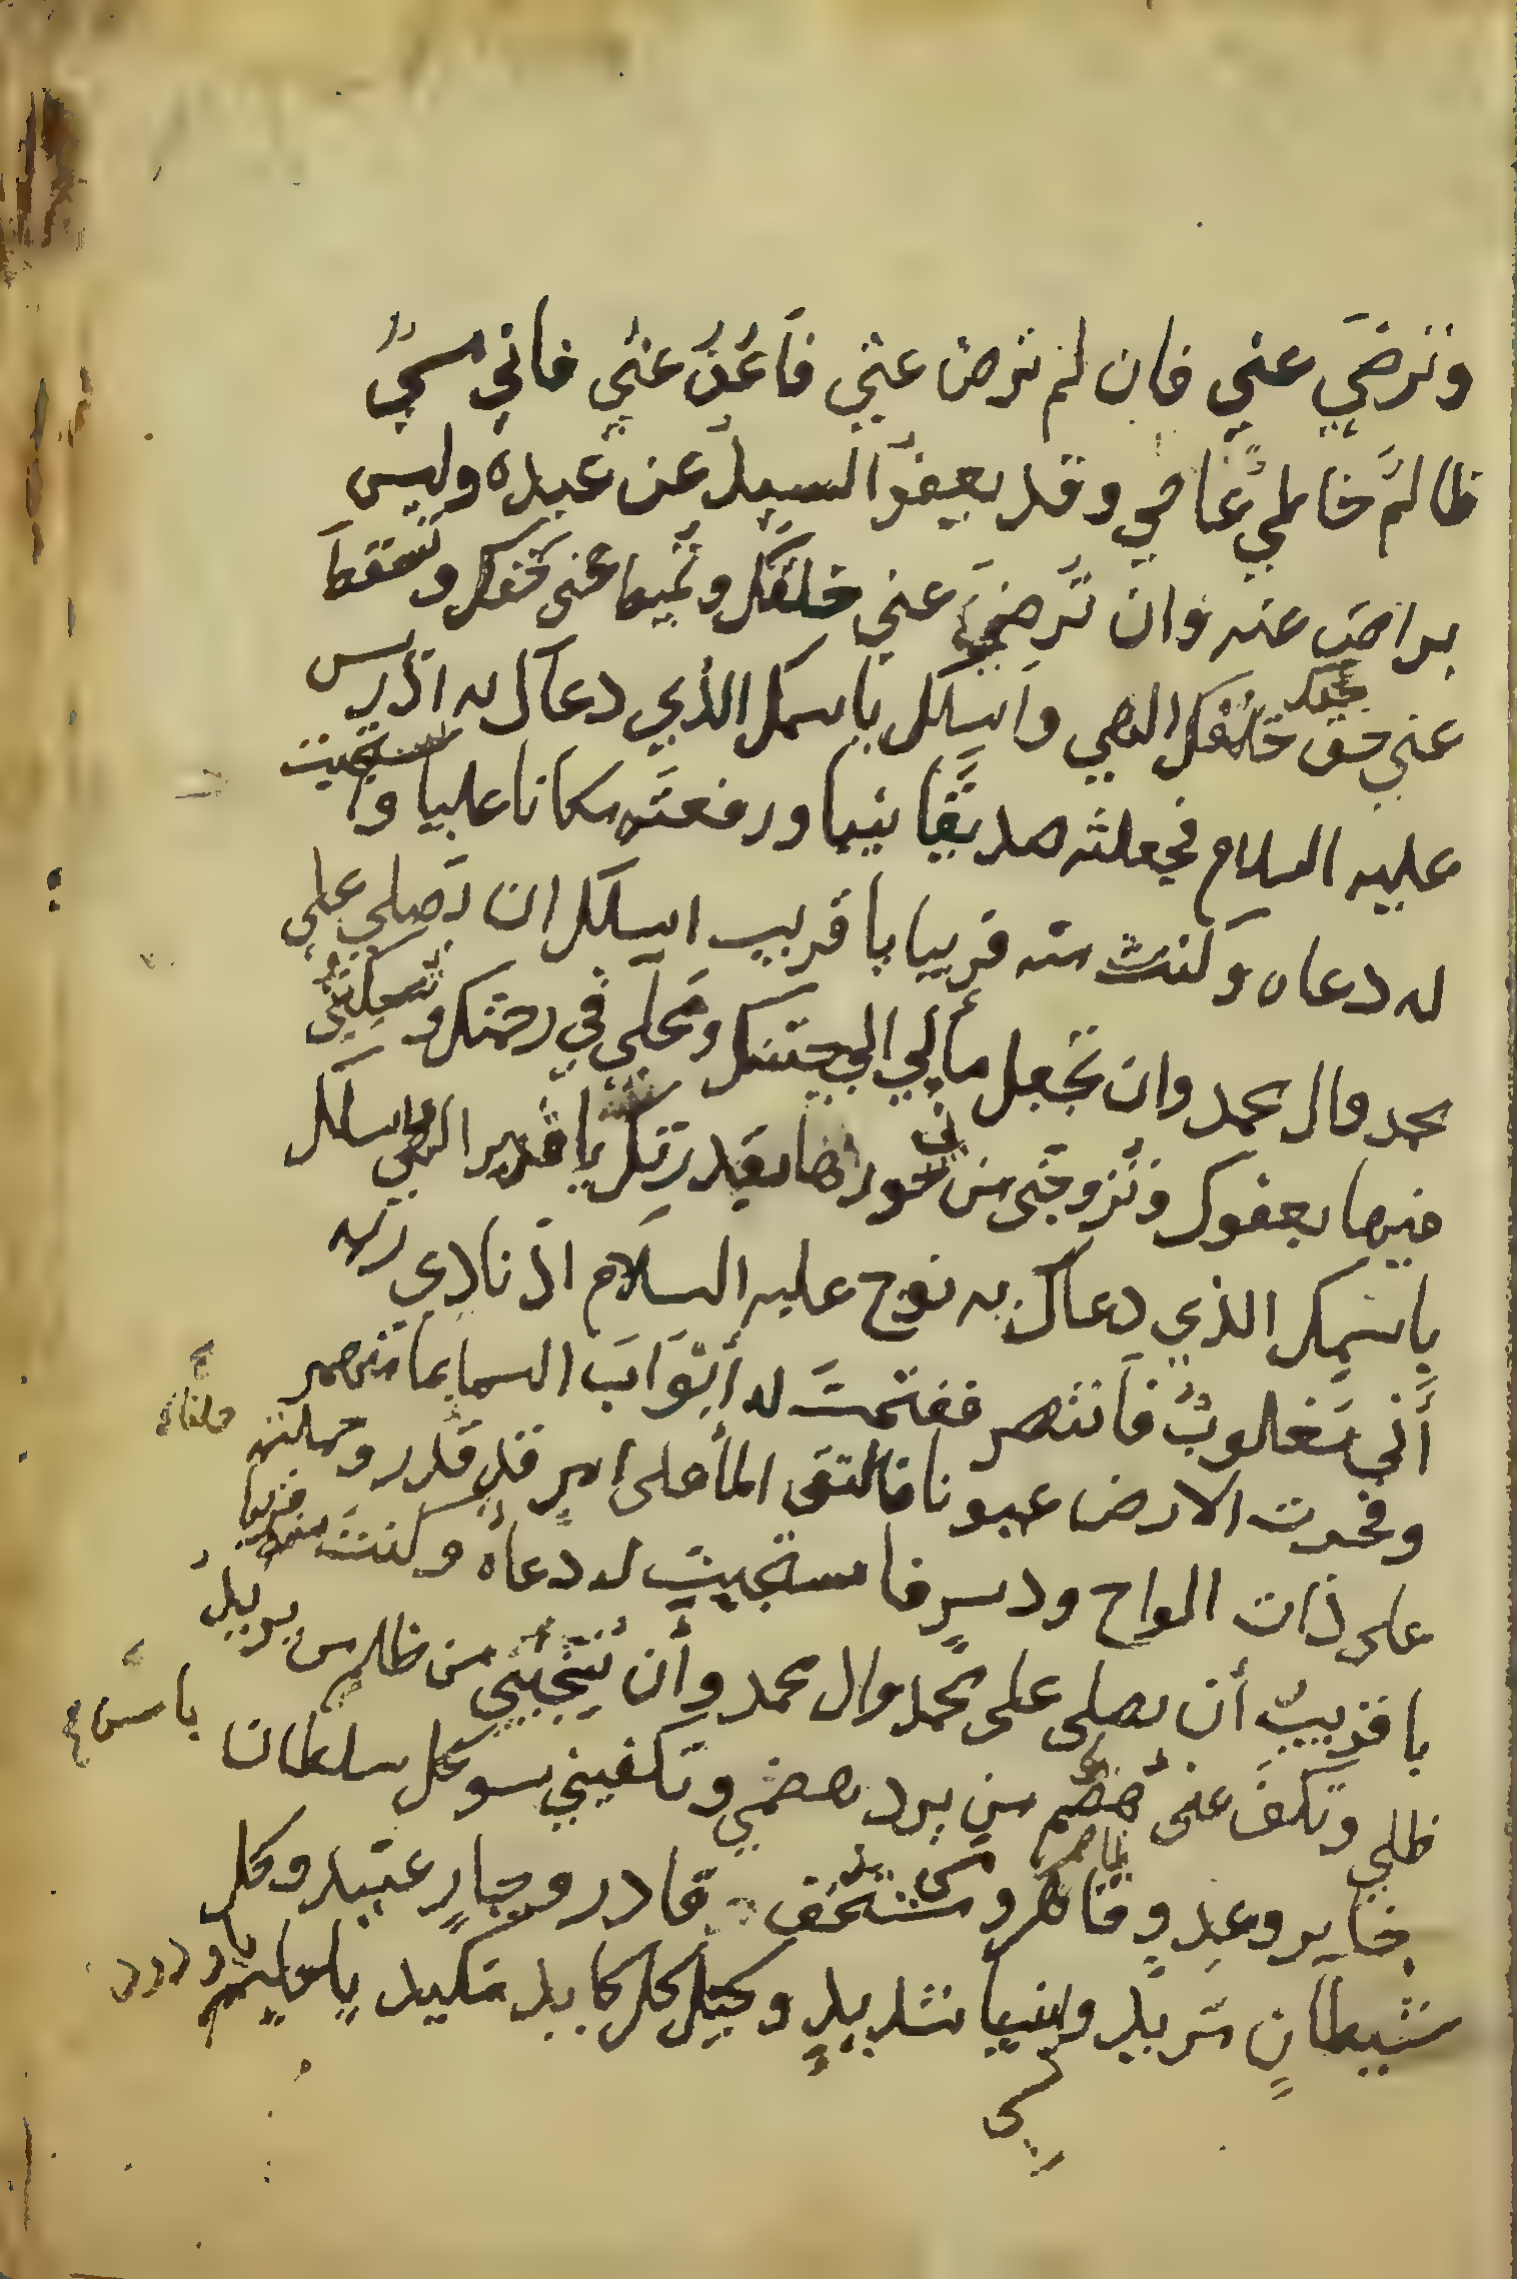 وترضي عني فان لم ترض عني فاعف عني فاني مسيء
ظالم خاطي عاصي وقد يعفو السيد عن عبده وليس
براض عنه وان ترضي عني خلقك وتميط عني حقك وتسقط
عني حق خلقك الهي واسلك باسمك الذي دعاك به ادريس
عليه السلام فجعلته صديقا نبيا ورفعته مكانا عليا واستجبت
له دعاه وكنت منه قريبا يا قريب اسلك ان تصلي علي
محمد وال محمد وان تجعل مألي الي جنتك ومحلي في رحمتك وتسكنني
فيها بعفوك وتزوجني من حورها بقدرتك يا قدير الهي اسلك
باسمك الذي دعاك به نوح عليه السلام اذ نادي ربه
أني مغلوب فانتصر ففتحت له أبواب السما بما منهمر
وفجرت الارض عيونا فالتقى المأ على امر قد قدر وحملته
على ذات الواح ودسر فاستجبت له دعاه وكنت منه قريبا
يا قريب أن تصلى على محمد وال محمد وأن تنجيني من ظلم من يريد
ظلمي وتكف عني هضم من يرد هضمي وتكفيني سو كل سلطان
جاير وعدو قاهر ومستخف قادر وجبار عنيد وكل
شيطان مريد وانسي شديد وكيد كل كايد مكيد يا حليم يا ودود